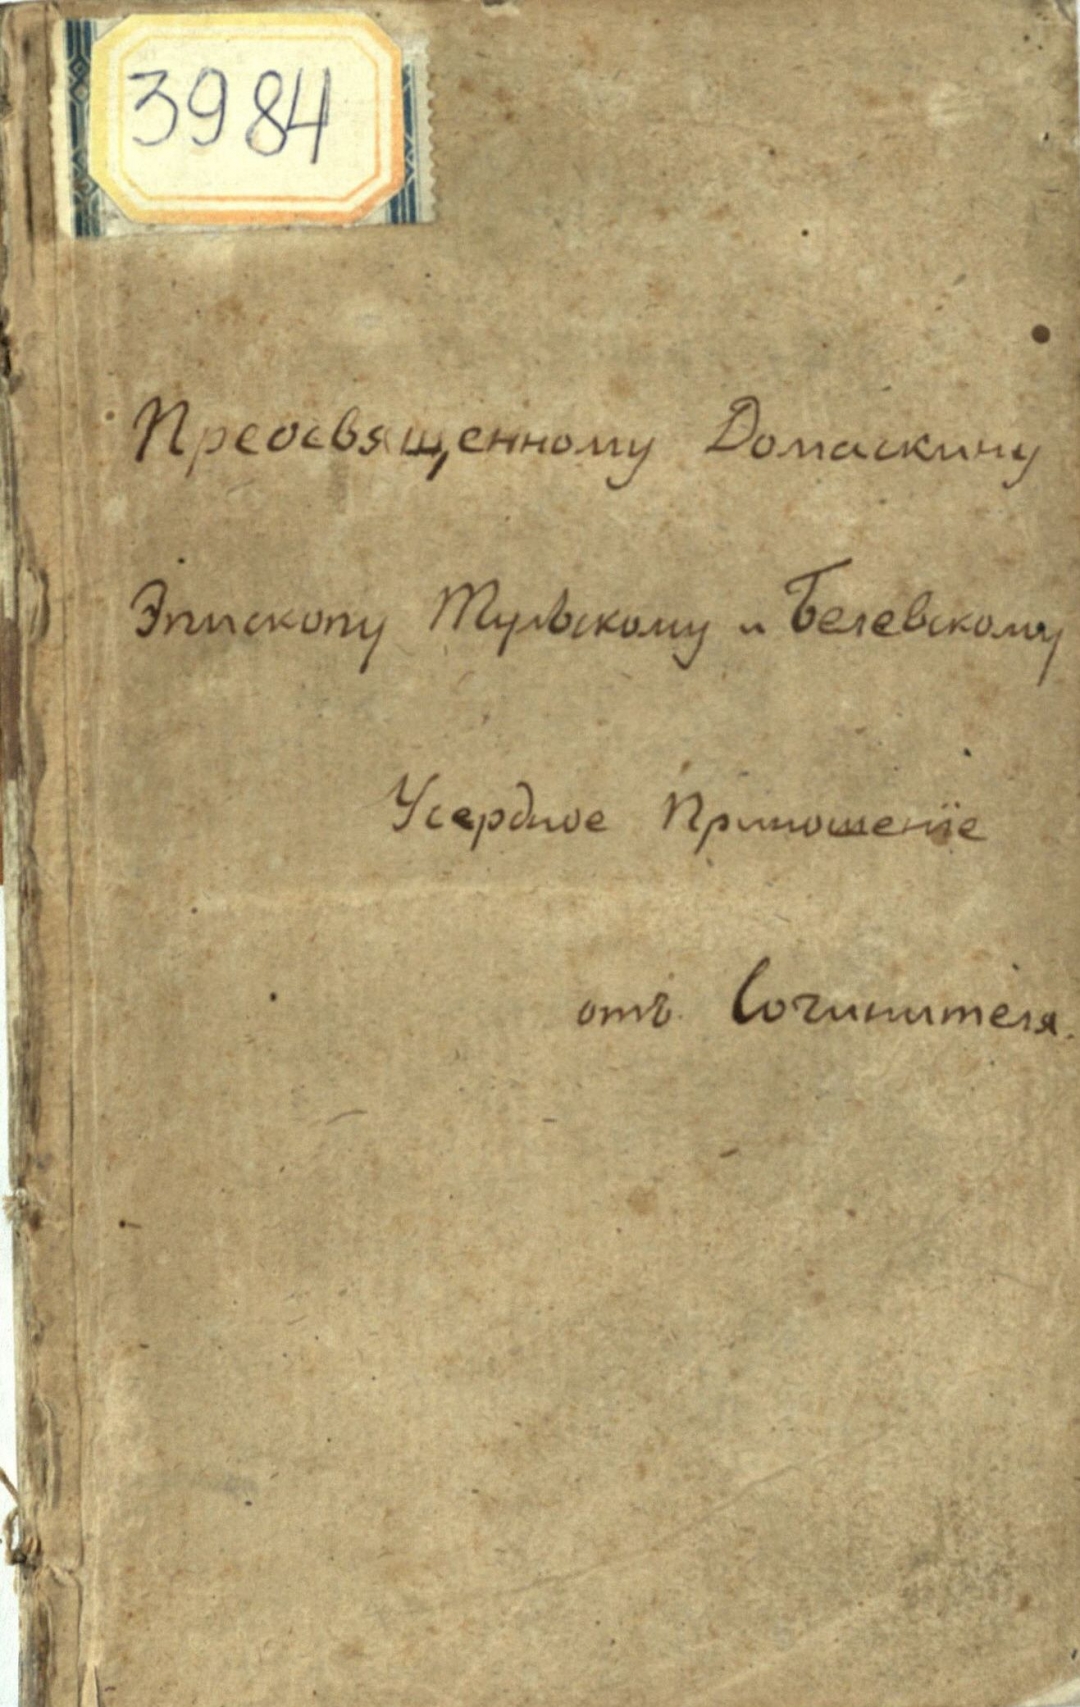 3984
Преосвященному Домаскину
Эпископу Тульскому и Белевскому
Усердное Приношенїе
отъ Сочинителя.